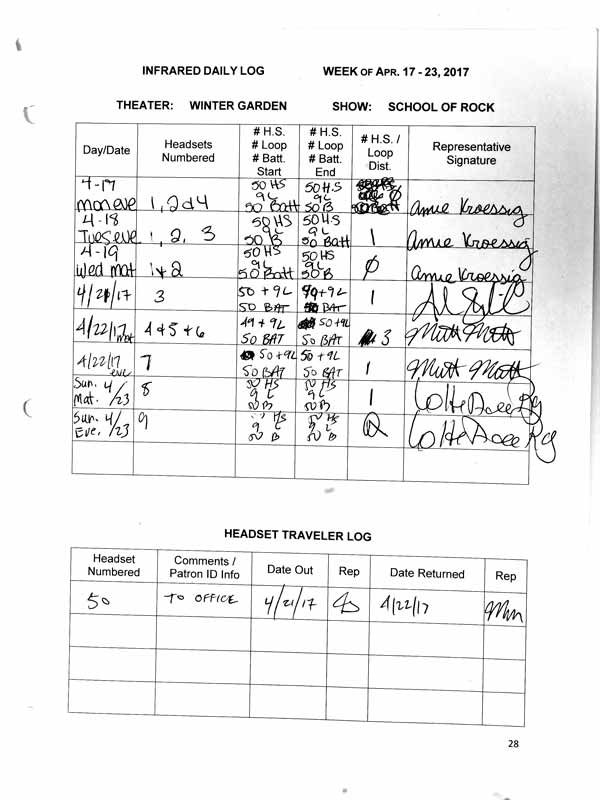 INFRARED DAILY LOG WEEK OF APR. 17 - 23, 2017
THEATER: WINTER GARDEN SHOW: SCHOOL OF ROCK
Day/Date Headsets Numbered # H.S. # Loop # Batt. Start # H.S. # Loop # Batt. End # H.S. / Loop Dist. Representative Signature
4-17 mon eve 1, 2 d 4 50 HS 9L 50 Batt 50 H.S 9L 50 Batt Amie Kroessig
4-18 Tues eve 1, 2, 3 50 HS 9L 50 B 50 HS 9L 50 Batt 1 Amie Kroessig
4-19 Wed mat 1 & 2 50 HS 9L 50 Batt 50 HS 9L 50 B Ø Amie Kroessig
4/21/17 3 50 + 9L 50 BAT 49+9L 50 BAT 1
4/22/17 mat 4 & 5 + 6 49 + 9L 50 BAT 50 +9L 50 BAT 3
4/22/17 eve 7 50 +9L 50 BAT 50 + 9L 50 BAT 1
Sun. 4/23 Mat. 8 50 HS 9 L 50 B 50 HS 9 L 50 B 1
Sun. 4/23 Eve. 9 50 HS 9 L 50 B 50 HS 9 L 50 B
HEADSET TRAVELER LOG
Headset Numbered Comments / Patron ID Info Date Out Rep Date Returned Rep
50 TO OFFICE 4/21/17 4/22/17
28